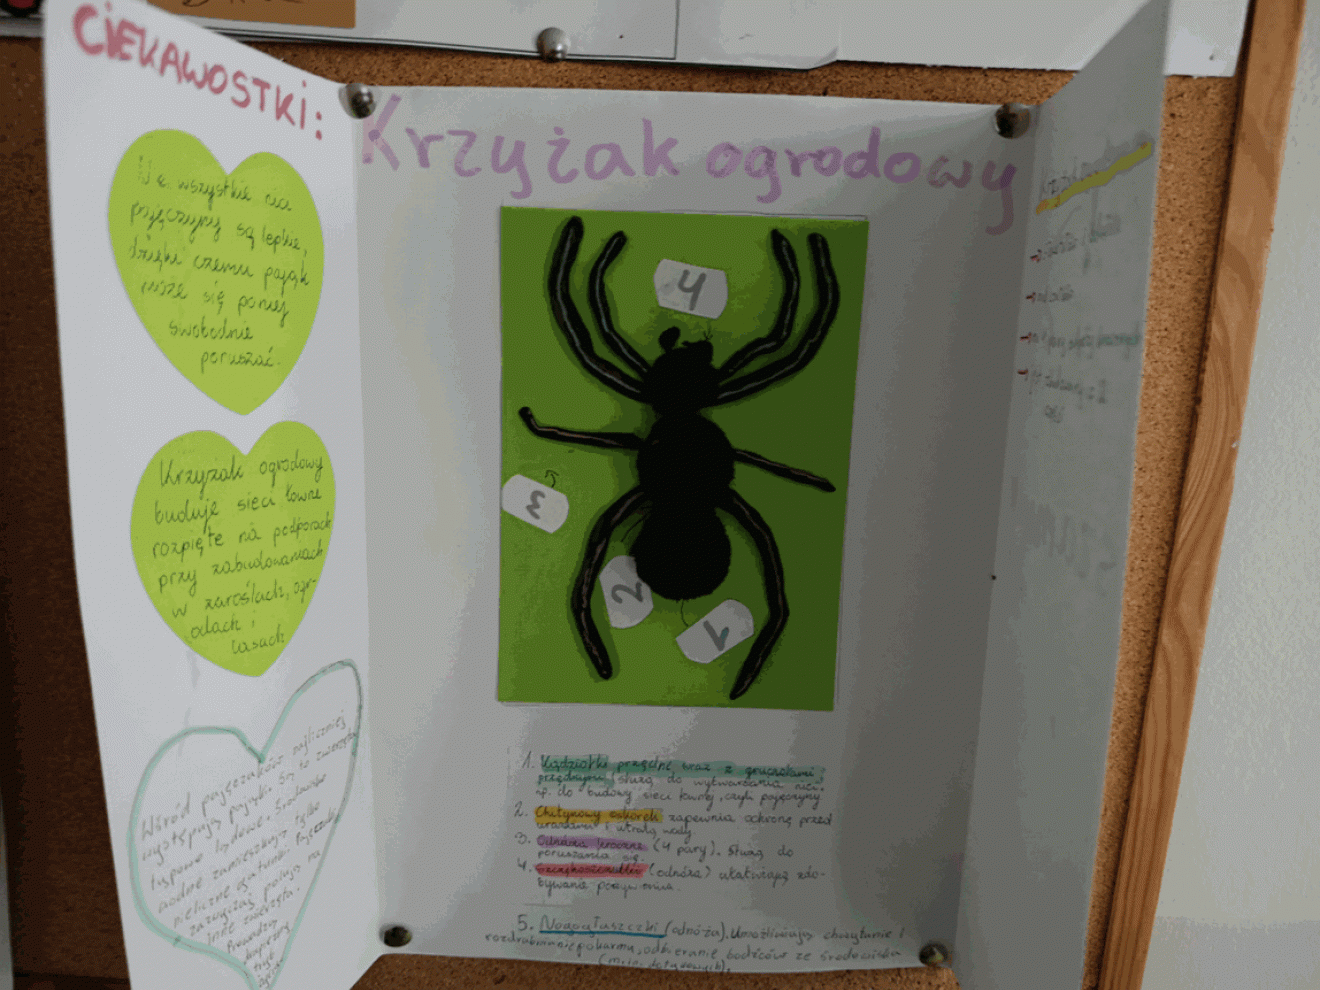 CIEKAWOSTKI:
Nie wszystkie nici
pajęczyny są lepkie,
dzięki czemu pająk
może się po niej
swobodnie
poruszać.
Krzyżak ogrodowy
buduje sieci łowne
rozpięte na podporach
przy zabudowaniach
w zaroślach, ogr-
odach i
lasach
Wśród pajęczaków najliczniej
występują pająki. Są to zwierzęta
typowo lądowe. Środowisko
wodne zamieszkują tylko
nieliczne gatunki. Pajęczaki
zazwyczaj polują na
inne zwierzęta.
Prowadzą
tryb
Krzyżak ogrodowy
4
3
2
1
1. Kądziołki przędne wraz z gruczołami
przędnymi służą do wytwarzania nici,
np. do budowy sieci łownej, czyli pajęczyny
2. Chitynowy oskórek zapewnia ochronę przed
urazami i utratą wody
3. Odnóża kroczne (4 pary). Służą do
poruszania się.
4. szczękoczułki (odnóża) ułatwiają zdo-
bywanie pożywienia.
5. Nogogłaszczki (odnóża). Umożliwiają chwytanie i
rozdrabnianie pokarmu, odbieranie bodźców ze środowiska
(m.in. dotykowych).